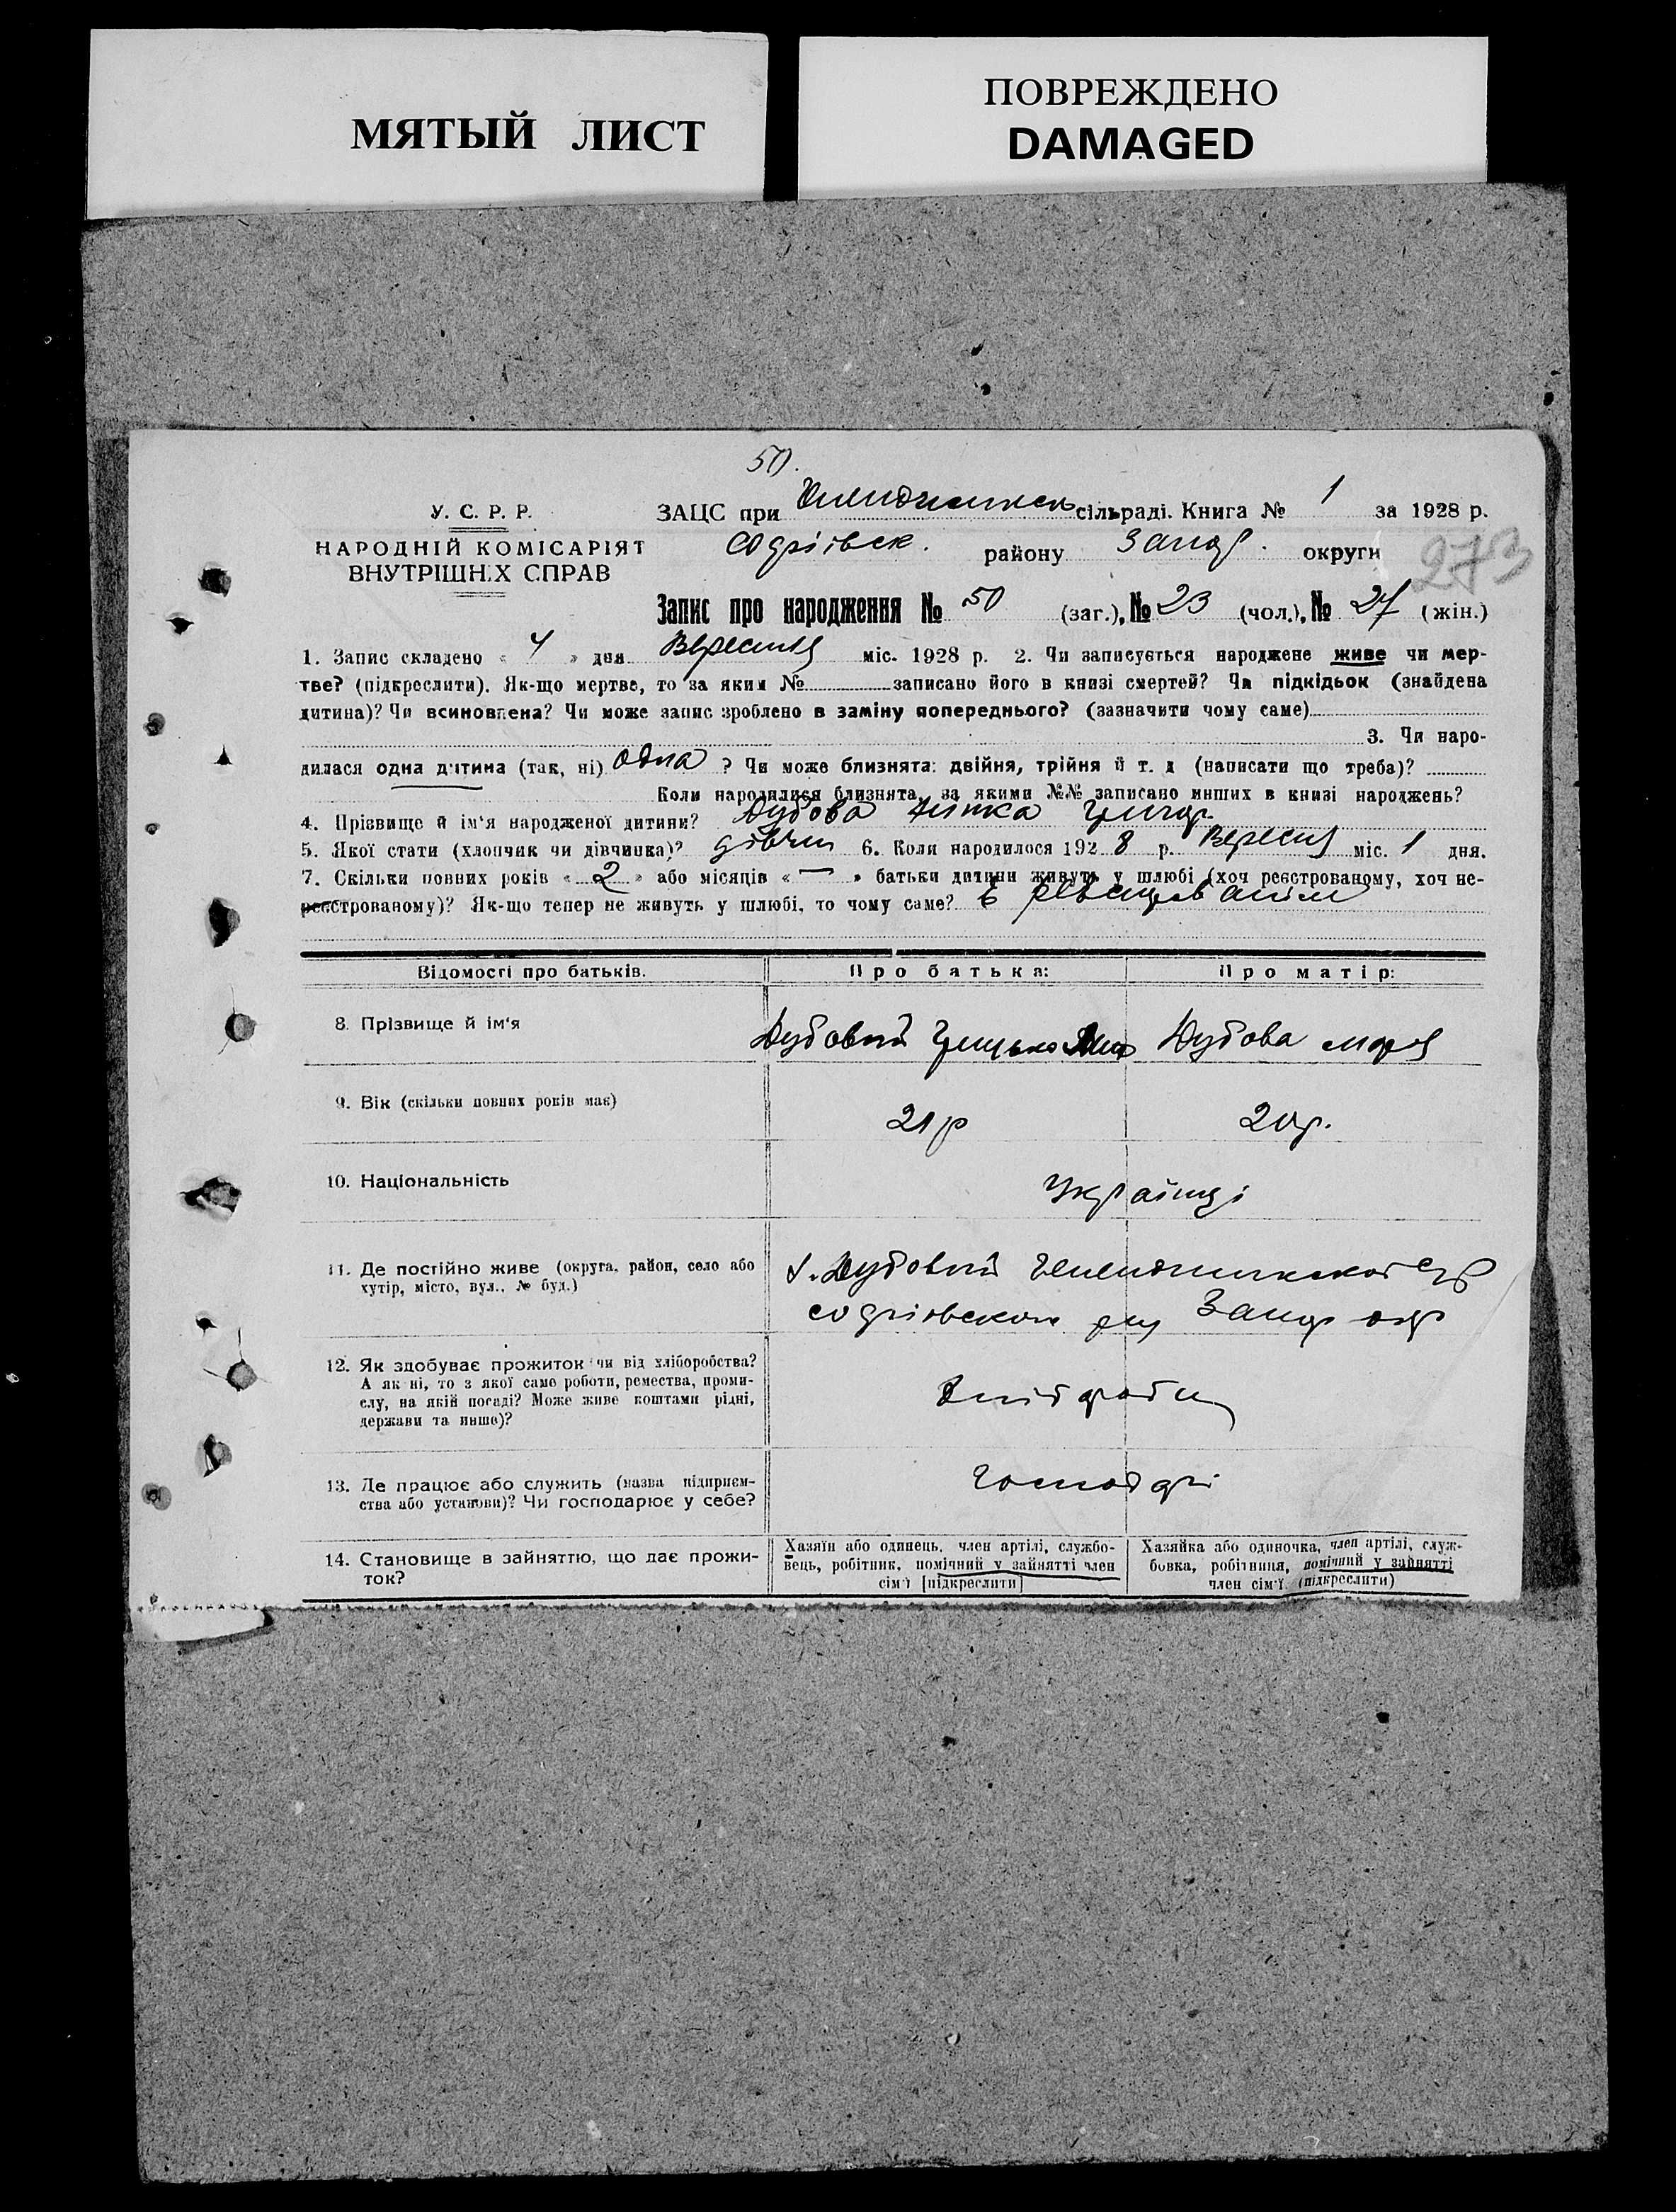 МЯТЫЙ ЛИСТ
ПОВРЕЖДЕНО
DAMAGED
50.
У. С. Р. Р.
НАРОДНІЙ КОМІСАРІЯТ
ВНУТРІШН.Х СПРАВ
ЗАЦС при сільраді. Книга № 1 за 1928 р.
району Запор. округи
273
Запис про народження № 50 (заг.), № 23 (чол.), № 27 (жін.)
1. Запис складено « 4 » дня Вересня міс. 1928 р. 2. Чи записується народжене живе чи мер-
тве? (підкреслити). Як-що мертве, то за яким № записано його в книзі смертей? Чи підкідьок (знайдена
дитина)? Чи всиновлена? Чи може запис зроблено в заміну попереднього? (зазначити чому саме)
3. Чи наро-
дилася одна дитина (так, ні) одна ? Чи може близнята: двійня, трійня й т. д (написати що треба)?
Коли народилися близнята, за якими №№ записано инших в книзі народжень?
4. Прізвище й ім'я народженої дитини? Дубова Григор.
5. Якої стати (хлопчик чи дівчинка)? дівчин 6. Коли народилося 192 8 р. Вересня міс. 1 дня.
7. Скільки повних років « 2 » або місяців « — » батьки дитини живуть у шлюбі (хоч реєстрованому, хоч не-
реєстрованому)? Як-що тепер не живуть у шлюбі, то чому саме? в
Відомості про батьків.
Про батька:
Про матір:
8. Прізвище й ім'я
Дубовий Грицько
Дубова Марія
9. Вік (скільки повних років має)
21 р
20 р.
10. Національність
Українці
11. Де постійно живе (округа, район, село або
хутір, місто, вул., № буд.)
Дубовий
Запор окр
12. Як здобуває прожиток чи від хліборобства?
А як ні, то з якої саме роботи, ремества, проми-
слу, на якій посаді? Може живе коштами рідні,
держави та инше)?
13. Де працює або служить (назва підприєм-
ства або установи)? Чи господарює у себе?
14. Становище в зайняттю, що дає прожи-
ток?
Хазяїн або одинець, член артілі, службо-
вець, робітник, помічний у зайнятті член
сім'ї [підкреслити]
Хазяйка або одиночка, член артілі, служ-
бовка, робітниця, помічний у зайнятті
член сім'ї. (підкреслити)